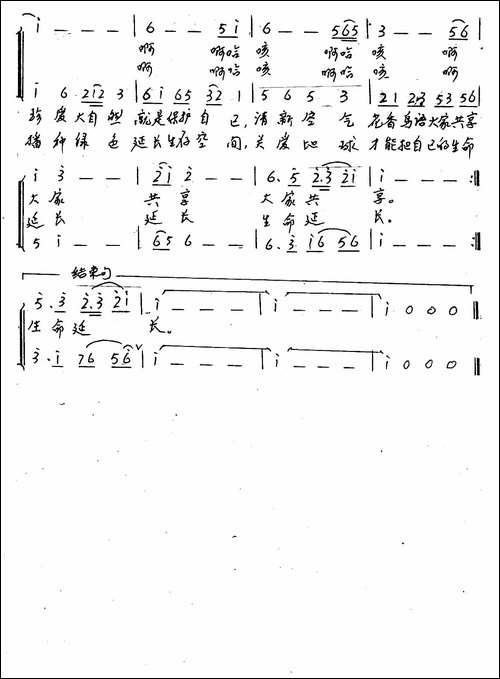 i - - - | 6 - - 5 i | 6 - - 5 6 5 | 3 - - 5 6 |
啊 啊哈 咳 啊哈 咳 啊
啊 啊哈 咳 啊哈 咳 啊
i 6 2 i 2 3 | 6 i 6 5 3 2 1 | 5 6 5 3 | 2 1 2 3 5 3 5 6
珍爱大自然 就是保护自己, 清新空气 花香鸟语大家共享
播种绿色 延长生存空间, 关爱地球 才能把自己的生命
i 3 - - | 2 i 2 - - | 6. 5 2. 3 2 i | i - - - :||
大家 共享 大家共享。
延长 延长 生命延长。
5 i - - | 6 5 6 - - | 6. 3 i 6 5 6 | i - - - :||
结束句
5. 3 2. 3 2 i | i - - - | i - - - | i 0 0 0 ||
生命延长。
3. i 7 6 5 6 V | i - - - | i - - - | i 0 0 0 ||